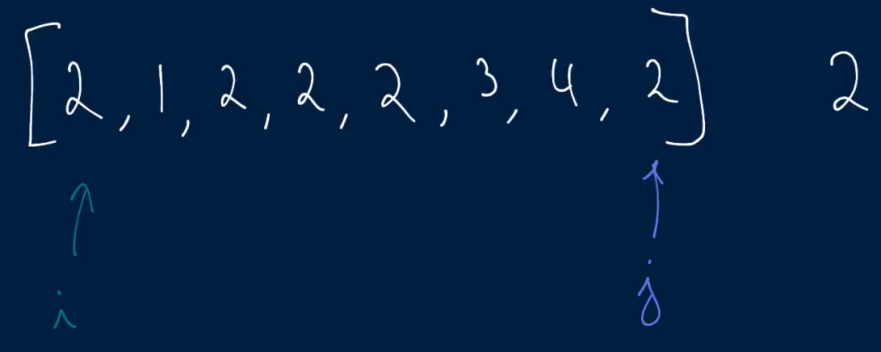 [2, 1, 2, 2, 2, 3, 4, 2] 2
i j